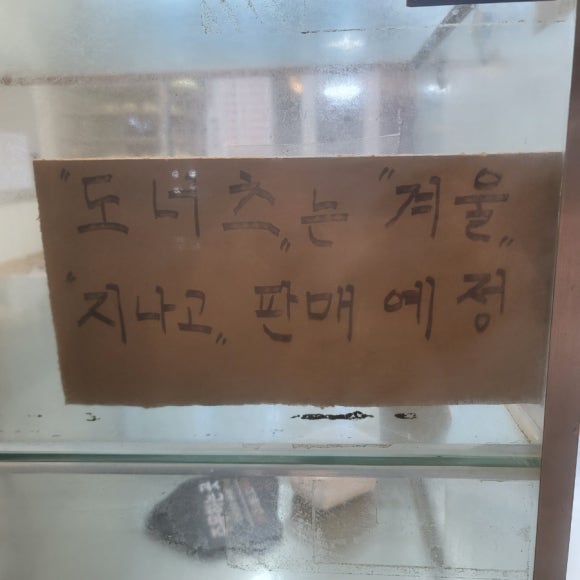 "도너츠„는 "겨울„
"지나고„ 판매 예정